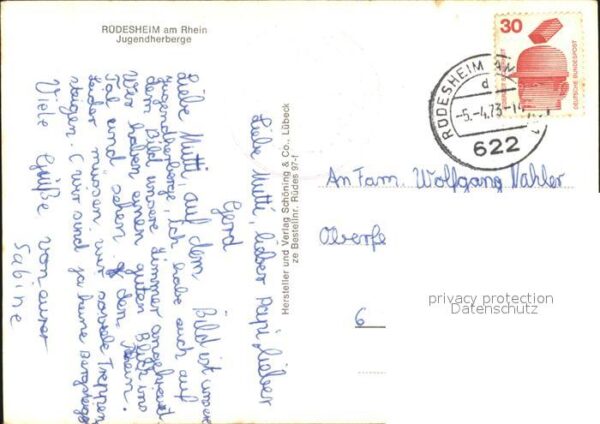 RÜDESHEIM am Rhein
Jugendherberge
Liebe Mutti, lieber Papi, lieber
Gerd
Liebe Mutti, auf dem Bild ist unsere
Jugendherberge, Ich habe auch auf
dem Bild unsere Zimmer angekreuzt.
Wir haben einen guten Blick ins
Tal und sehen den Rhein.
Leider müssen wir soviele Treppen
steigen. (wir sind ja keine Bergsteiger
Viele Grüße von eurer
Sabine
Hersteller und Verlag Schöning & Co., Lübeck
ze Bestellnr. Rüdes 97-f
30
DEUTSCHE BUNDESPOST
RÜDESHEIM AM
d
-5.-4.73-14
622
An Fam. Wolfgang Vahler
Oberfe
6
privacy protection
Datenschutz